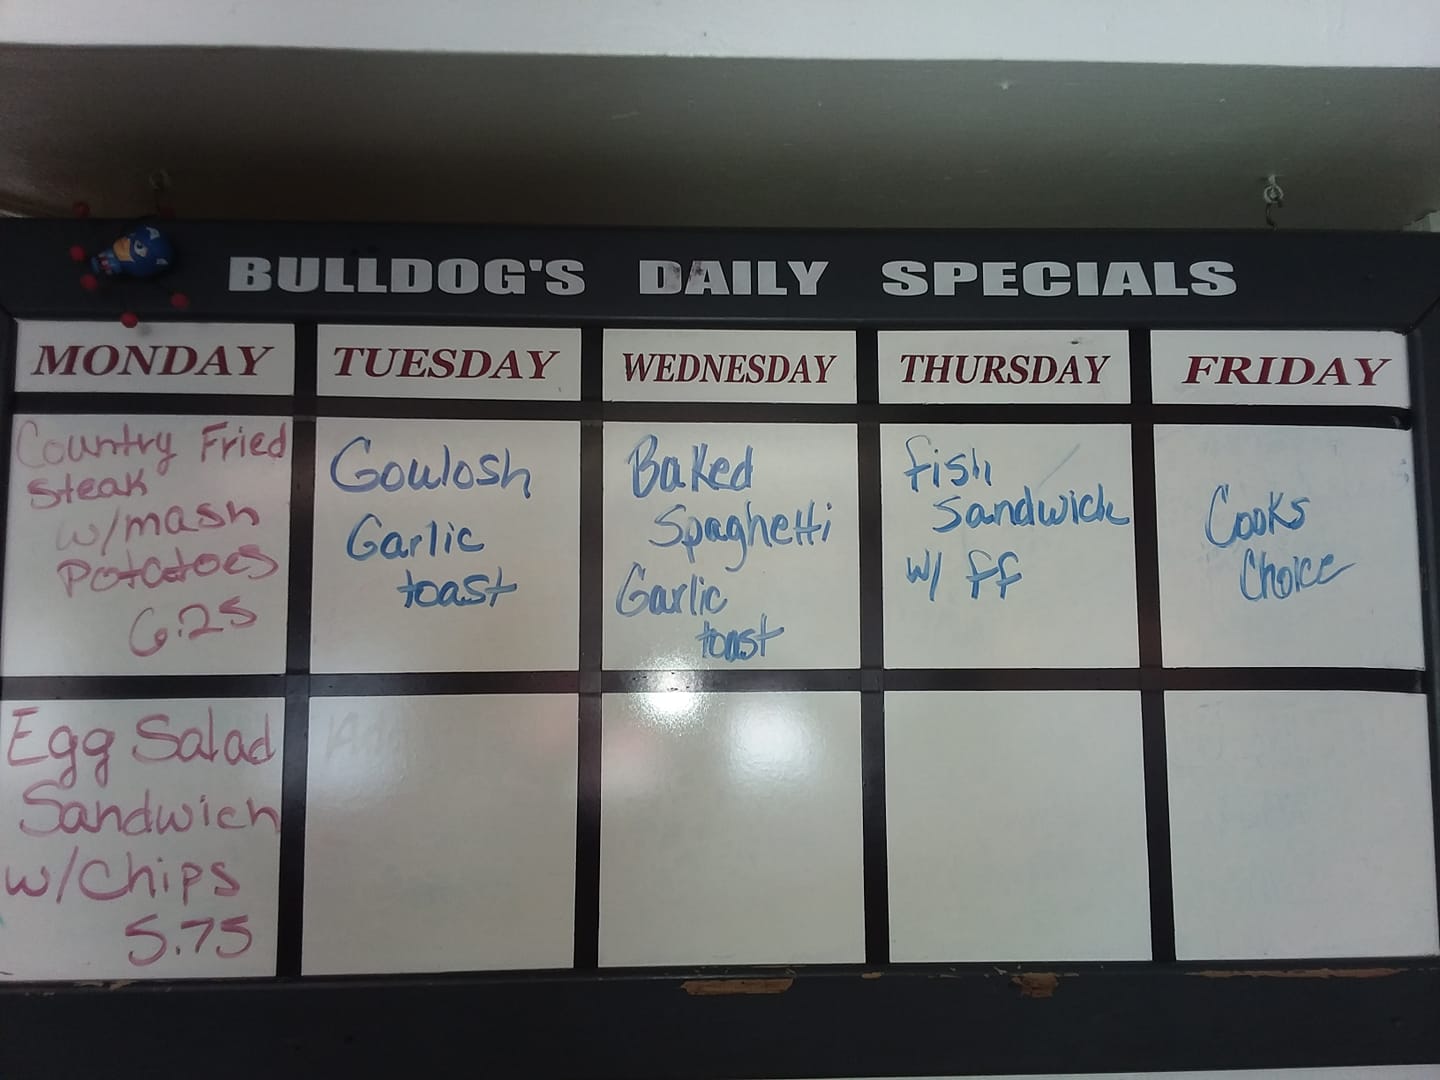 BULLDOG'S DAILY SPECIALS
MONDAY
TUESDAY
WEDNESDAY
THURSDAY
FRIDAY
Country Fried
Steak
w/mash
Potatoes
6.25
Goulosh
Garlic
toast
Baked
Spaghetti
Garlic
toast
fish
Sandwich
w/ ff
Cooks
Choice
Egg Salad
Sandwich
w/Chips
5.75